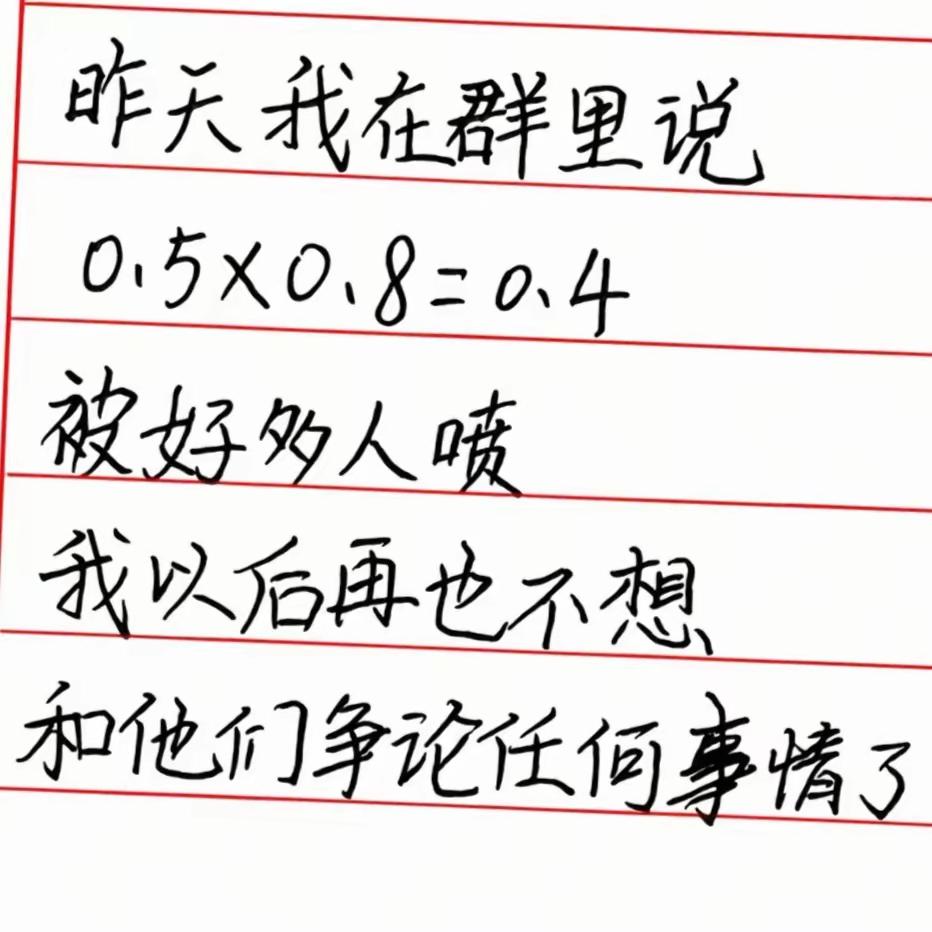 昨天我在群里说
0.5×0.8=0.4
被好多人喷
我以后再也不想
和他们争论任何事情了